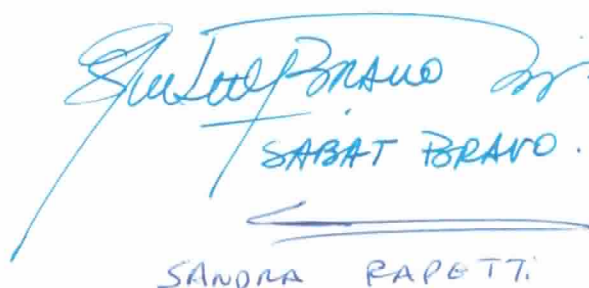 BRAVO
SABAT BRAVO.
SANDRA RAPETTI